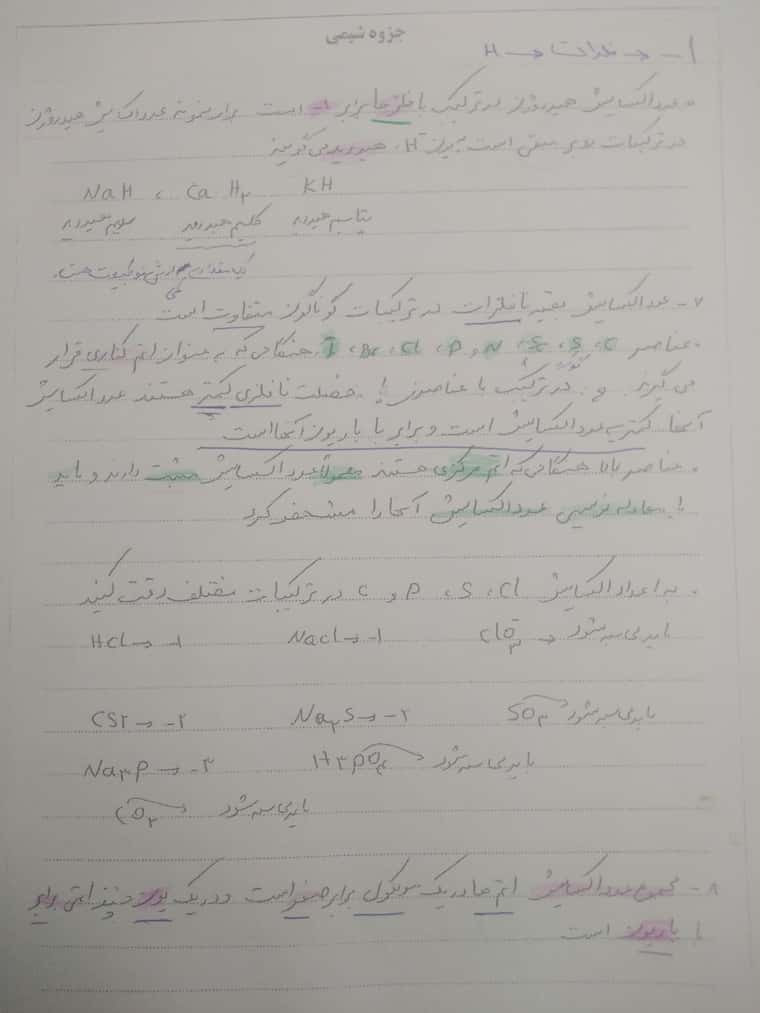 جزوه شیمی
فلزات → H
عدد اکسایش هیدروژن در ترکیب با فلزها برابر ۱- است برای نمونه عدد اکسایش هیدروژن
در ترکیبات زیر منفی است به یون H⁻، هیدرید می گویند
NaH ، CaH۲ KH
سدیم هیدرید کلسیم هیدرید پتاسیم هیدرید
۷- عدد اکسایش بقیه نافلزات در ترکیبات گوناگون متفاوت است
عناصر C ، S ، Se ، N ، P ، Cl ، Br ، I هنگامی که به عنوان اتم کناری قرار
می گیرند و در ترکیب با عناصری با خصلت نافلزی کمتر هستند عدد اکسایش
آنها کمترین عدد اکسایش است و برابر با بار یون آنها است
عناصر بالا هنگامی که اتم مرکزی هستند معمولا عدد اکسایش مثبت دارند و باید
با معادله نویسی عدد اکسایش آنها را مشخص کرد
به اعداد اکسایش Cl ، S ، P و C در ترکیبات مختلف دقت کنید
HCl → -۱ NaCl → -۱ ClO۳⁻ → باید محاسبه شود
CS۲ → -۲ Na۲S → -۲ SO۳ → باید محاسبه شود
Na۳P → -۳ H۳PO۴ → باید محاسبه شود
CO۲ → باید محاسبه شود
۸- مجموع عدد اکسایش اتم ها در یک مولکول برابر صفر است و در یک یون چند اتمی برابر
با بار یون است